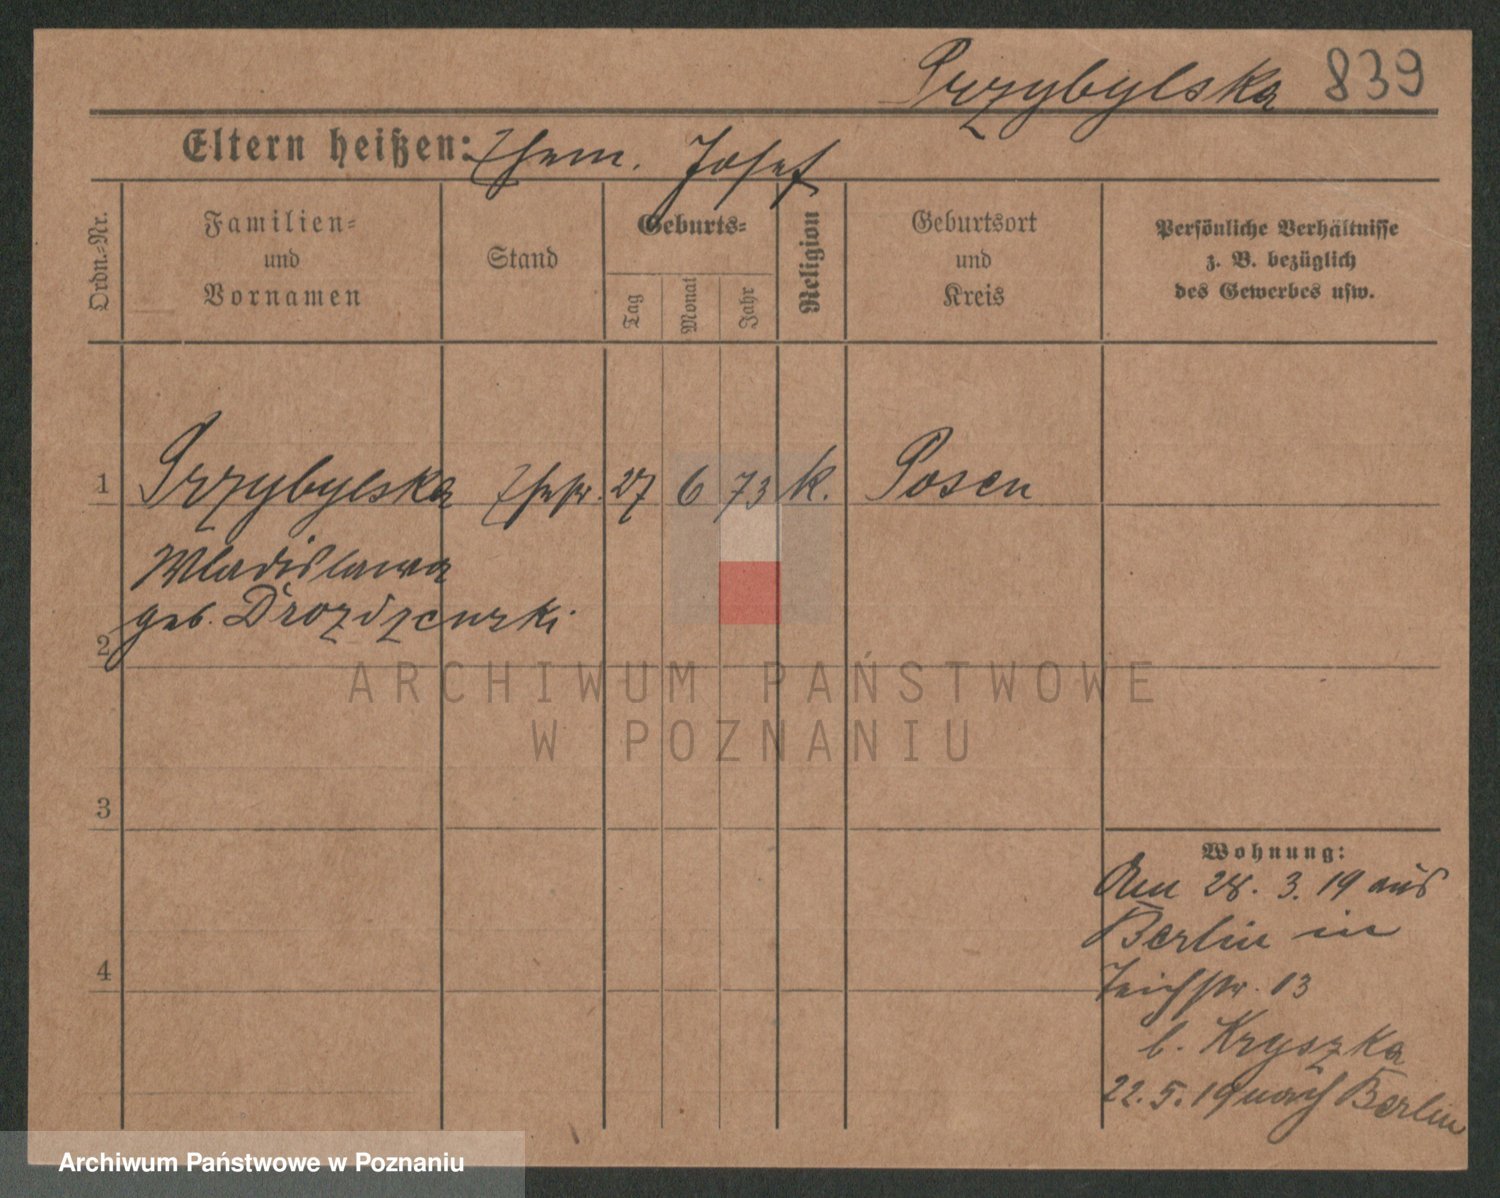 Przybylska 839
Eltern heißen: Ehem. Josef
Ordn.-Nr.
Familien-
und
Vornamen
Stand
Geburts-
Tag
Monat
Jahr
Religion
Geburtsort
und
Kreis
Persönliche Verhältnisse
z. B. bezüglich
des Gewerbes usw.
1 Przybylska Ehefr. 27 6 73 k. Posen
Wladislawa
geb.
2
3
4
Wohnung:
Am 28. 3. 19 aus
Berlin in
Teichstr. 13
b. Kryszka
22. 5. 19 nach Berlin
ARCHIWUM PAŃSTWOWE
W POZNANIU
Archiwum Państwowe w Poznaniu